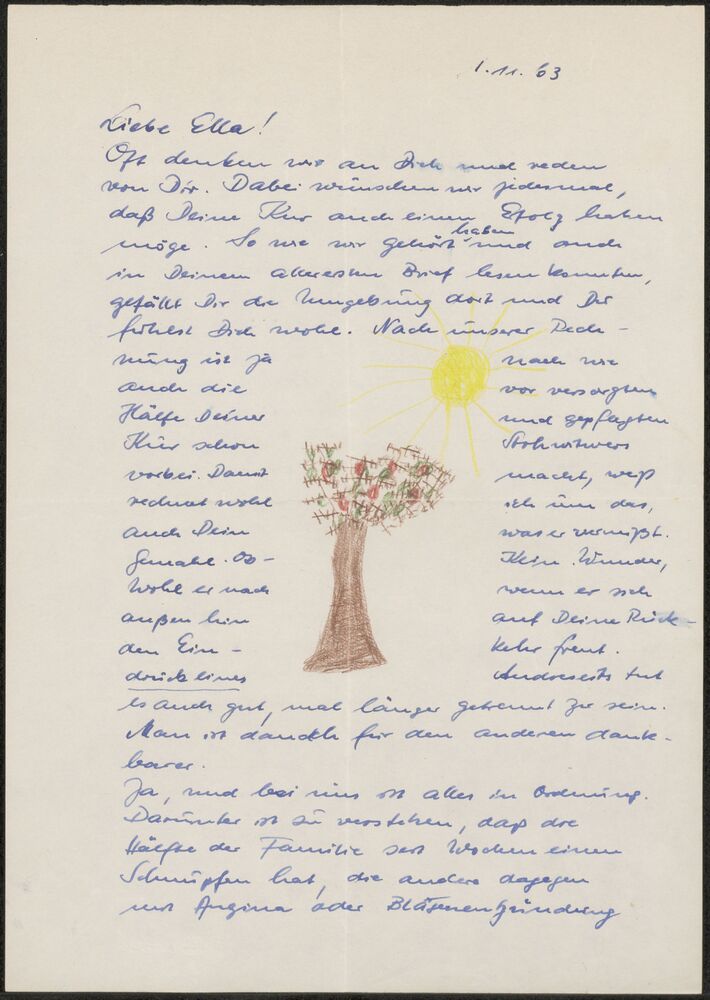 1.11.63
Liebe Ella!
Oft denken wir an Dich und reden
von Dir. Dabei wünschen wir jedesmal,
daß Deine Kur auch einen Erfolg haben
möge. So wie wir gehört haben und auch
in Deinem allerersten Brief lesen konnten,
gefällt Dir die Umgebung dort und Du
fühlst Dich wohl. Nach unserer Rech-
nung ist ja
auch die
Hälfte Deiner
Kur schon
vorbei. Damit
rechnet wohl
auch Dein
Gemahl. Ob-
wohl er nach
außen hin
den Ein-
druck eines
nach wie
vor versorgten
und gepflegten
Strohwitwers
macht, weiß
ich um das,
was er vermißt.
Kein Wunder,
wenn er sich
auf Deine Rück-
kehr freut.
Andreseits tut
es auch gut, mal länger getrennt zu sein.
Man ist danach für den anderen dank-
barer.
Ja, und bei uns ist alles in Ordnung.
Darunter ist zu verstehen, daß die
Hälfte der Familie seit Wochen einen
Schnupfen hat, die andere dagegen
mit Angina oder Blasenentzündung